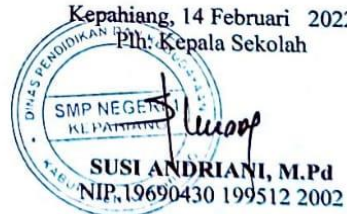 Kepahiang, 14 Februari 202
Plh. Kepala Sekolah
DINAS PENDIDIKAN DAN
SMP NEGERI 1
KEPAHIANG
SUSI ANDRIANI, M.Pd
NIP. 19690430 199512 2002